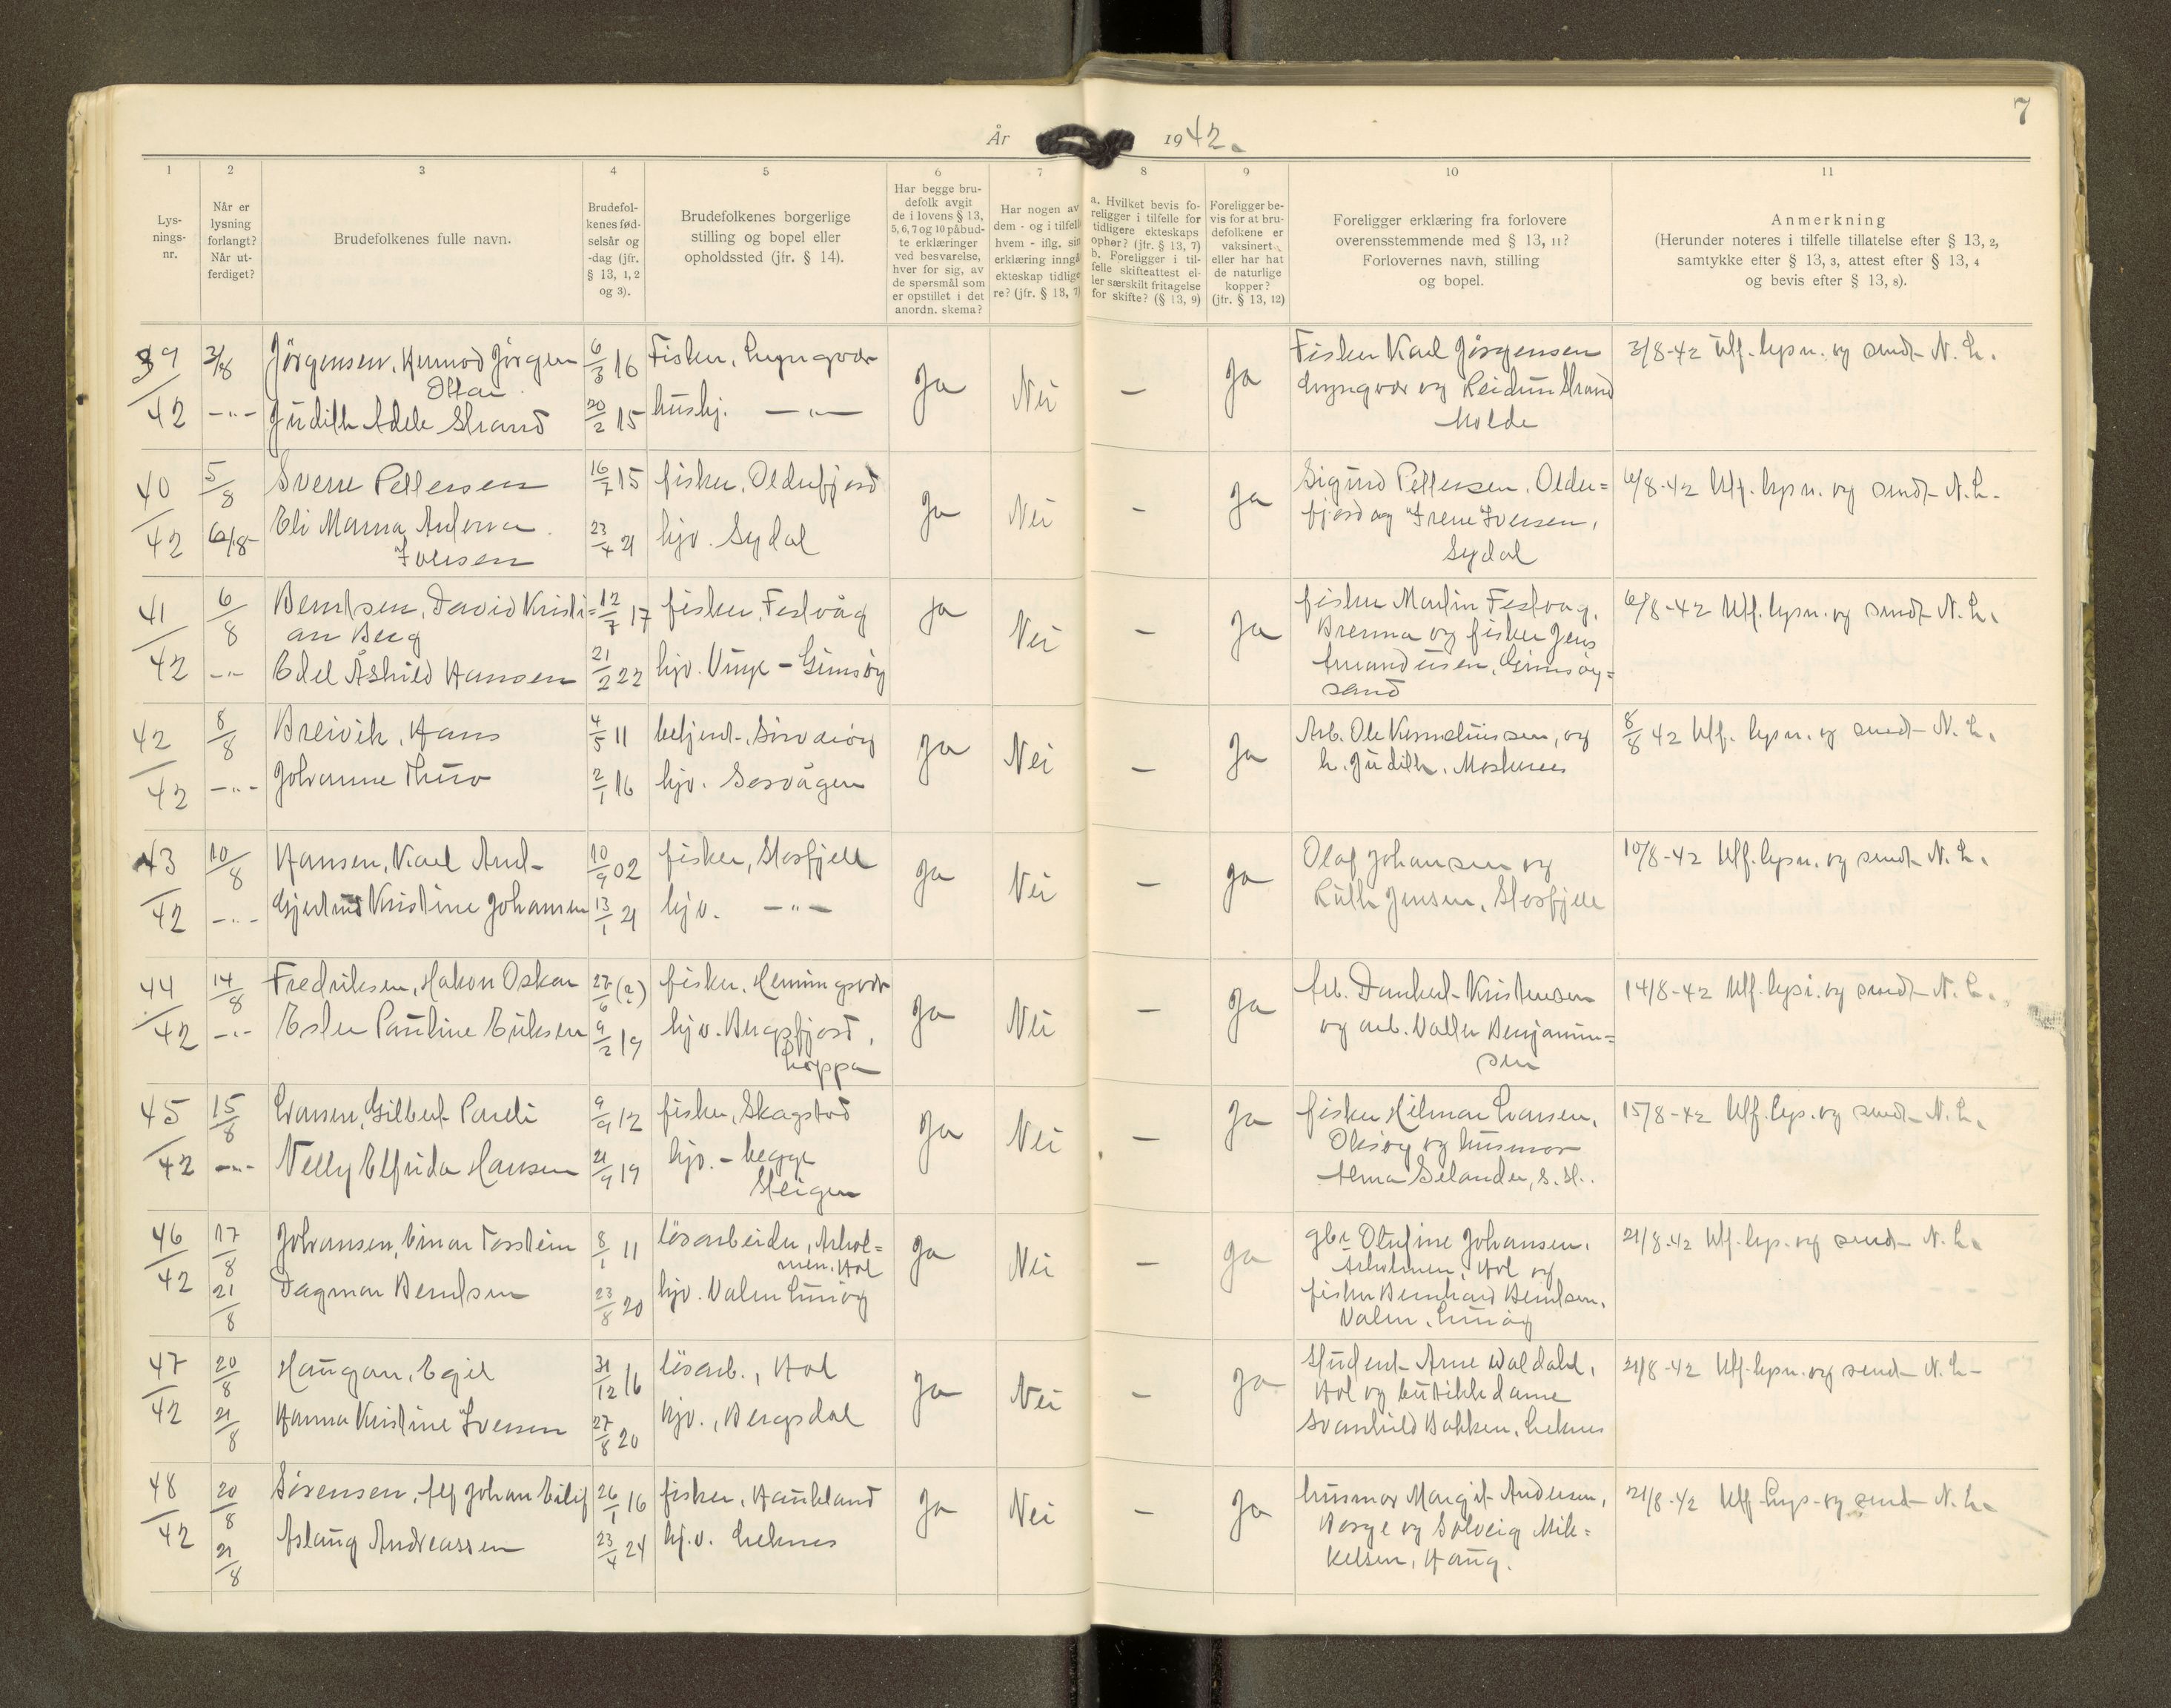 7
År 1942.
1 2 3 4 5 6 7 8 9 10 11
Lys-
nings-
nr.
Når er
lysning
forlangt?
Når ut-
ferdiget?
Brudefolkenes fulle navn.
Brudefol-
kenes fød-
selsår og
-dag (jfr.
§ 13, 1, 2
og 3).
Brudefolkenes borgerlige
stilling og bopel eller
opholdssted (jfr. § 14).
Har begge bru-
defolk avgit
de i lovens § 13,
5, 6, 7 og 10 påbud-
te erklæringer
ved besvarelse,
hver for sig, av
de spørsmål som
er opstillet i det
anordn. skema?
Har nogen av
dem - og i tilfelle
hvem - iflg. sin
erklæring inngå
ekteskap tidlige
re? (jfr. § 13, 7)
a. Hvilket bevis fo-
religger i tilfelle for
tidligere ekteskaps
ophør? (jfr. § 13, 7)
b. Foreligger i til-
felle skifteattest el-
ler særskilt fritagelse
for skifte? (§ 13, 9)
Foreligger be-
vis for at bru-
defolkene er
vaksinert
eller har hat
de naturlige
kopper?
(jfr. § 13, 12)
Foreligger erklæring fra forlovere
overensstemmende med § 13, 11?
Forlovernes navn, stilling
og bopel.
Anmerkning
(Herunder noteres i tilfelle tillatelse efter § 13, 2,
samtykke efter § 13, 3, attest efter § 13, 4
og bevis efter § 13, 8).
39/42
3/8
-"-
Jörgensen, Hermod Jörgen
Ottar
Judith Adele Strand
6/3 16
20/2 15
Fisker, Lyngvær
hushj. -"-
Ja
Nei
-
Ja
Fisker Karl Jörgensen
Lyngvær og Reidun Strand
Molde
3/8-42 Utf. lysn. og sendt N. L.
40/42
5/8
6/8
Sverre Pettersen
Eli Marna
Iversen
16/7 15
23/4 21
fisker, Olderfjord
hjv. Sydal
Ja
Nei
-
Ja
Sigurd Pettersen, Older=
fjord og Irene Iversen,
Sydal
6/8-42 Utf. lysn. og sendt N. L.
41/42
6/8
-"-
Berntsen, David Kristi=
an Berg
Edel Åshild Hansen
12/7 17
21/2 22
fisker, Festvåg
hjv. Vinje - Gimsöy
Ja
Nei
-
Ja
fisker Martin Festvåg,
Brenna og fisker Jens
Amandussen, Gimsöy=
sand
6/8-42 Utf. lysn. og sendt N. L.
42/42
8/8
-"-
Breivik, Hans
Johanne Thuv
4/5 11
2/1 16
betjent,
hjv. Sørvågen
Ja
Nei
-
Ja
Arb. Ole Korneliussen, og
h. Judith, Moskenes
8/8 42 Utf. lysn. og sendt N. L.
43/42
10/8
-"-
Hansen, Karl Arnt
Gjertrud Kristine Johansen
10/9 02
13/1 21
fisker, Storfjell
hjv. -"-
Ja
Nei
-
Ja
Olaf Johansen og
Ruth Jensen, Storfjell
10/8-42 Utf. lysn. og sendt N. L.
44/42
14/8
-"-
Fredriksen, Håkon Oskar
Ester Pauline Eriksen
27/6 (?)
9/2 19
fisker, Henningsvær
hjv. Bergsfjord,
Loppa
Ja
Nei
-
Ja
Arb. Dankert Kristensen
og arb. Valter Benjamin=
sen
14/8-42 Utf. lysn. og sendt N. L.
45/42
15/8
-"-
Evansen, Gilbert Pareli
Nelly Elfrida Hansen
9/9 12
21/9 19
fisker, Skagstad
hjv. - begge
Steigen
Ja
Nei
-
Ja
fisker Hilmar Evansen,
og husmor
Alma Selander, S. St.
15/8-42 Utf. lys. og sendt N. L.
46/42
17/8
21/8
Johansen, Einar Torstein
Dagmar Berntsen
8/1 11
23/8 20
lösarbeider, Arhol=
men, Hol
hjv. Valen Limöy
Ja
Nei
-
Ja
gbr. Olufine Johansen,
Arholmen, Hol og
fisker Bernhard Berntsen,
Valen, Limöy
21/8-42 Utf. lys. og sendt N. L.
47/42
20/8
21/8
Haugan, Egil
Hanna Kristine Iversen
31/12 16
27/8 20
lösarb., Hol
hjv., Bergsdal
Ja
Nei
-
Ja
Student Arne Woldahl,
Hol og butikkdame
Svanhild Bakken, Leknes
21/8-42 Utf. lysn. og sendt N. L.
48/42
20/8
21/8
Sörensen, Alf Johan Eilif
Aslaug Andreassen
26/1 16
23/4 24
fisker, Haukland
hj.v. Leknes
Ja
Nei
-
Ja
husmor Margit Andersen,
Borge og Solveig Mik=
kelsen, Haug.
21/8-42 Utf. lys. og sendt N. L.